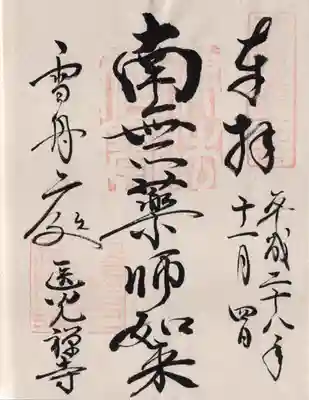 奉拝
平成二十八年
十一月四日
南無藥師如来
雪舟之庭
医光禅寺